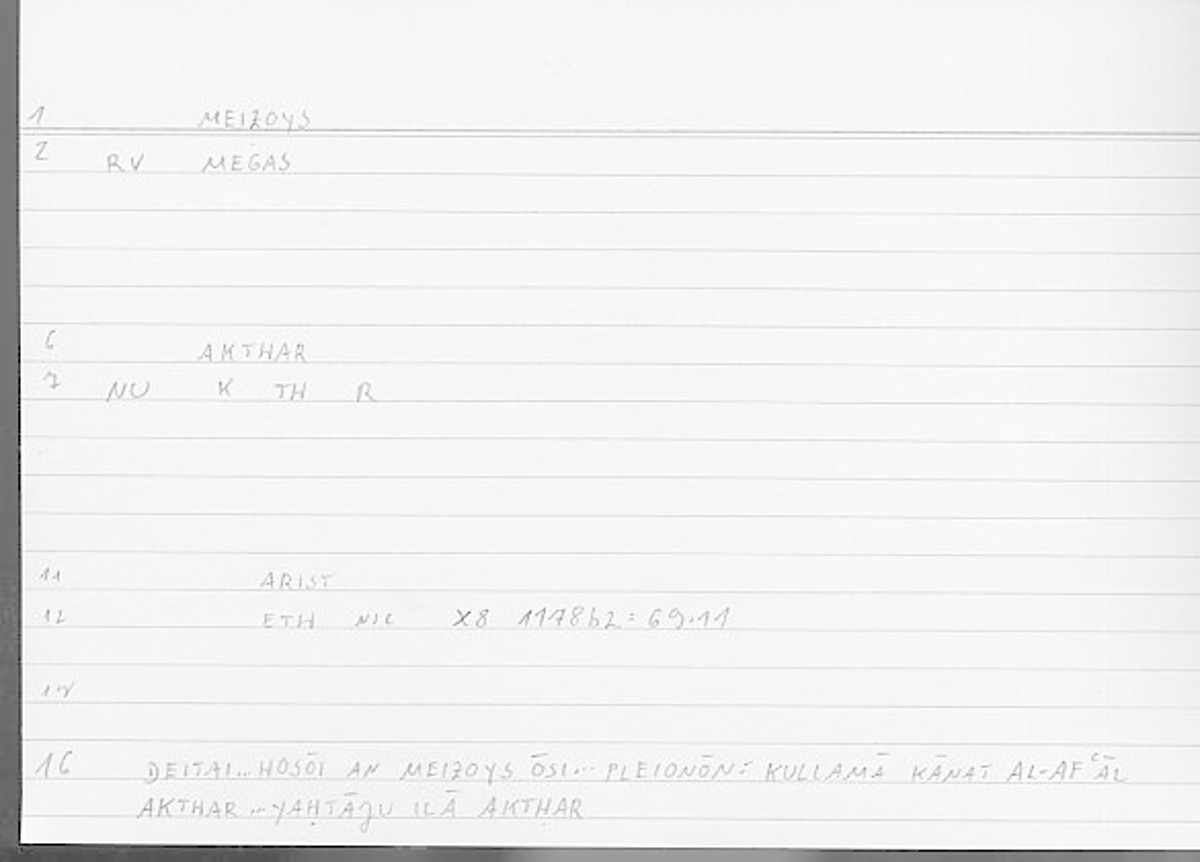 1 MEIZOYS
2 RV MEGAS
6 AKTHAR
7 NU K TH R
11 ARIST
12 ETH NIC X8 1178b2 = 69.11
16 DEITAI... HOSŌI AN MEIZOYS ŌSI... PLEIONŌN: KULLAMĀ KĀNAT AL-AFʿĀL
AKTHAR... YAḤTĀǧU ILĀ AKTHAR